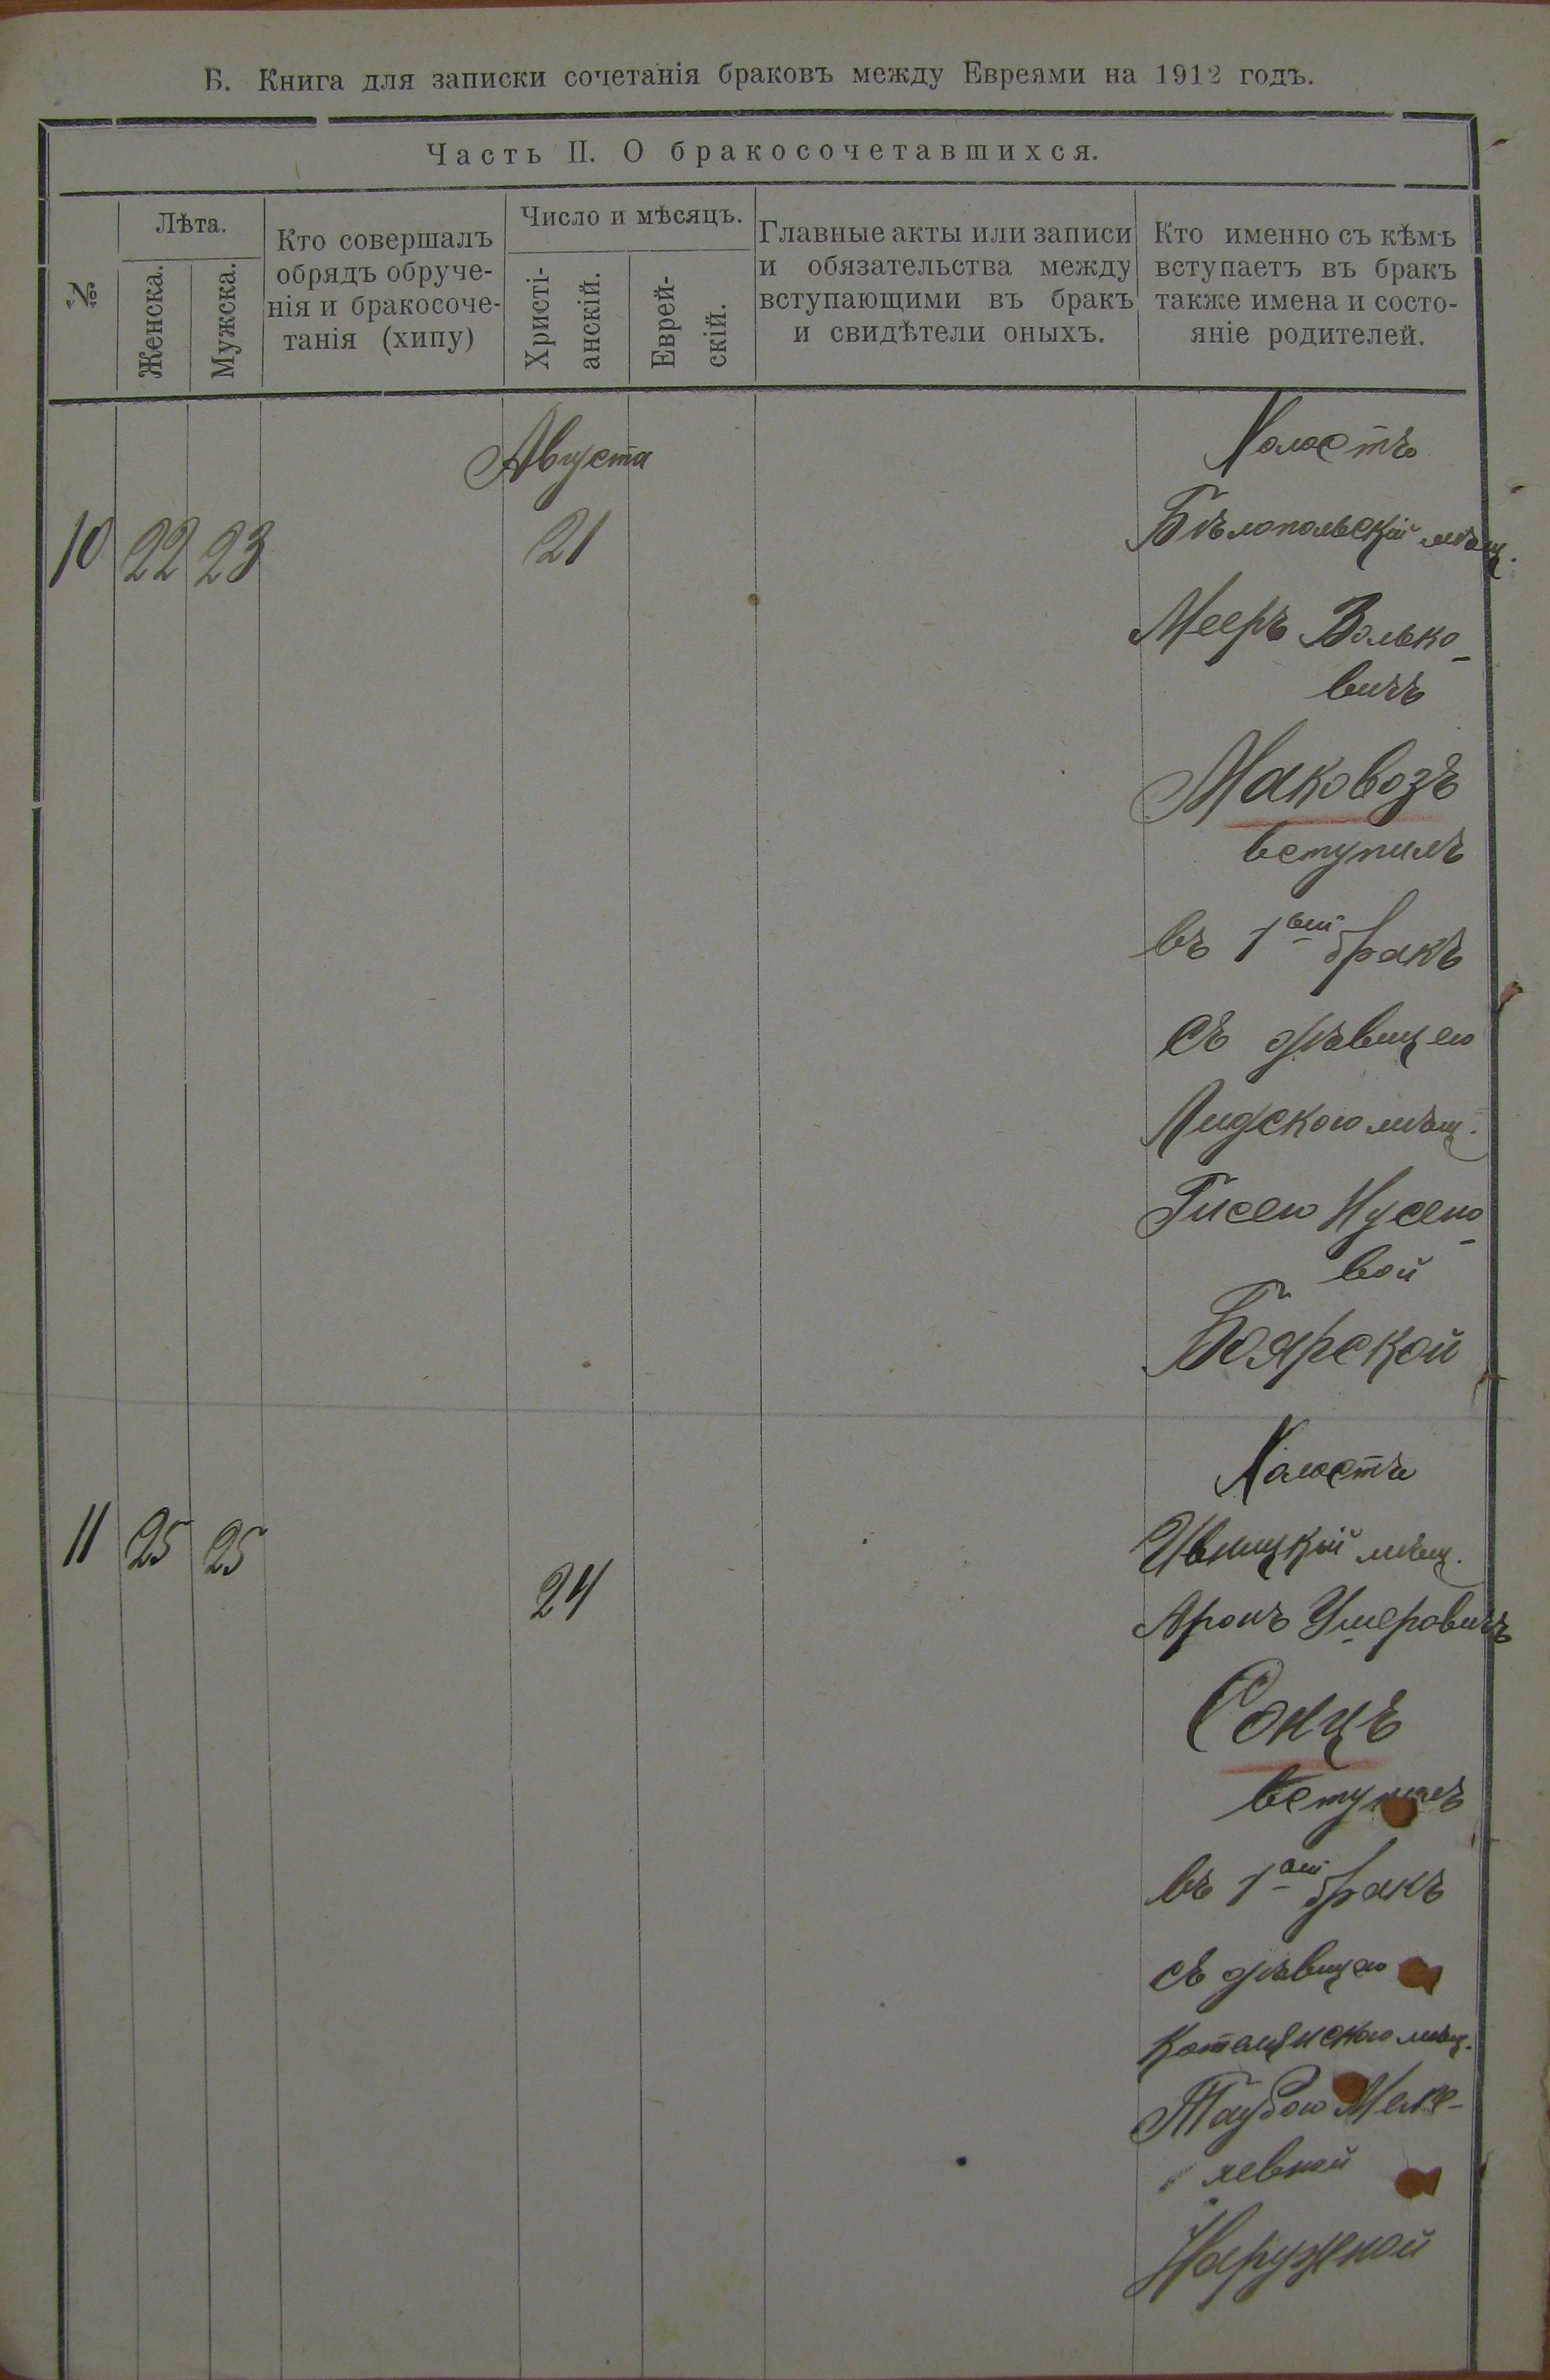 Б. Книга для записки сочетанія браковъ между Евреями на 1912 годъ.
Часть II. О бракосочетавшихся.
№
Лѣта.
Женска.
Мужска.
Кто совершалъ
обрядъ обруче-
нія и бракосоче-
танія (хипу)
Число и мѣсяцъ.
Христі-
анскій.
Еврей-
скій.
Главные акты или записи
и обязательства между
вступающими въ бракъ
и свидѣтели оныхъ.
Кто именно съ кѣмъ
вступаетъ въ бракъ
также имена и состо-
яніе родителей.
Августа
10 22 23 21
Холостъ
Бѣлопольскій мѣщ.
Мееръ Волько-
вичъ
Маковозъ
вступилъ
въ 1ый бракъ
съ дѣвицею
Лидскою мѣщ.
Гисею Нусено-
вой
Боярской
11 25 25 24
Холостъ
Ивницкій мѣщ.
Аронъ Умеровичъ
Сонцъ
вступилъ
въ 1ый бракъ
съ дѣвицею
мѣщ.
Таубою
левной
Наружной